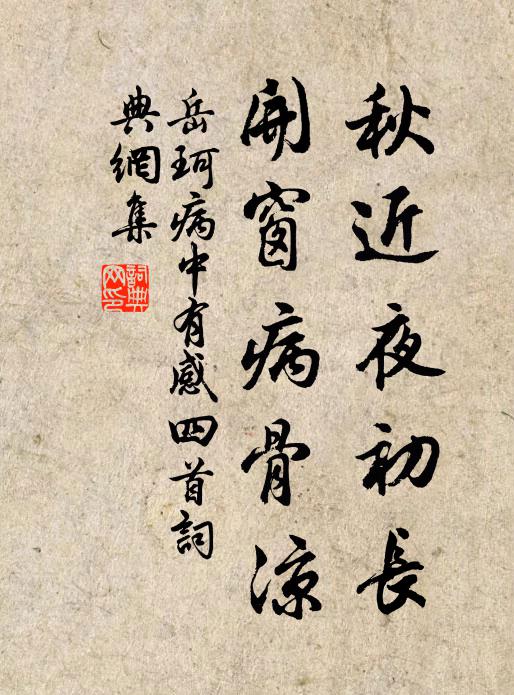 秋近夜初長
開窗病骨涼
岳珂病中有感四首詞
典網集
詞典
网印